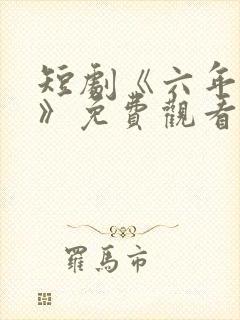 短劇《六年
》免費觀看
羅馬市